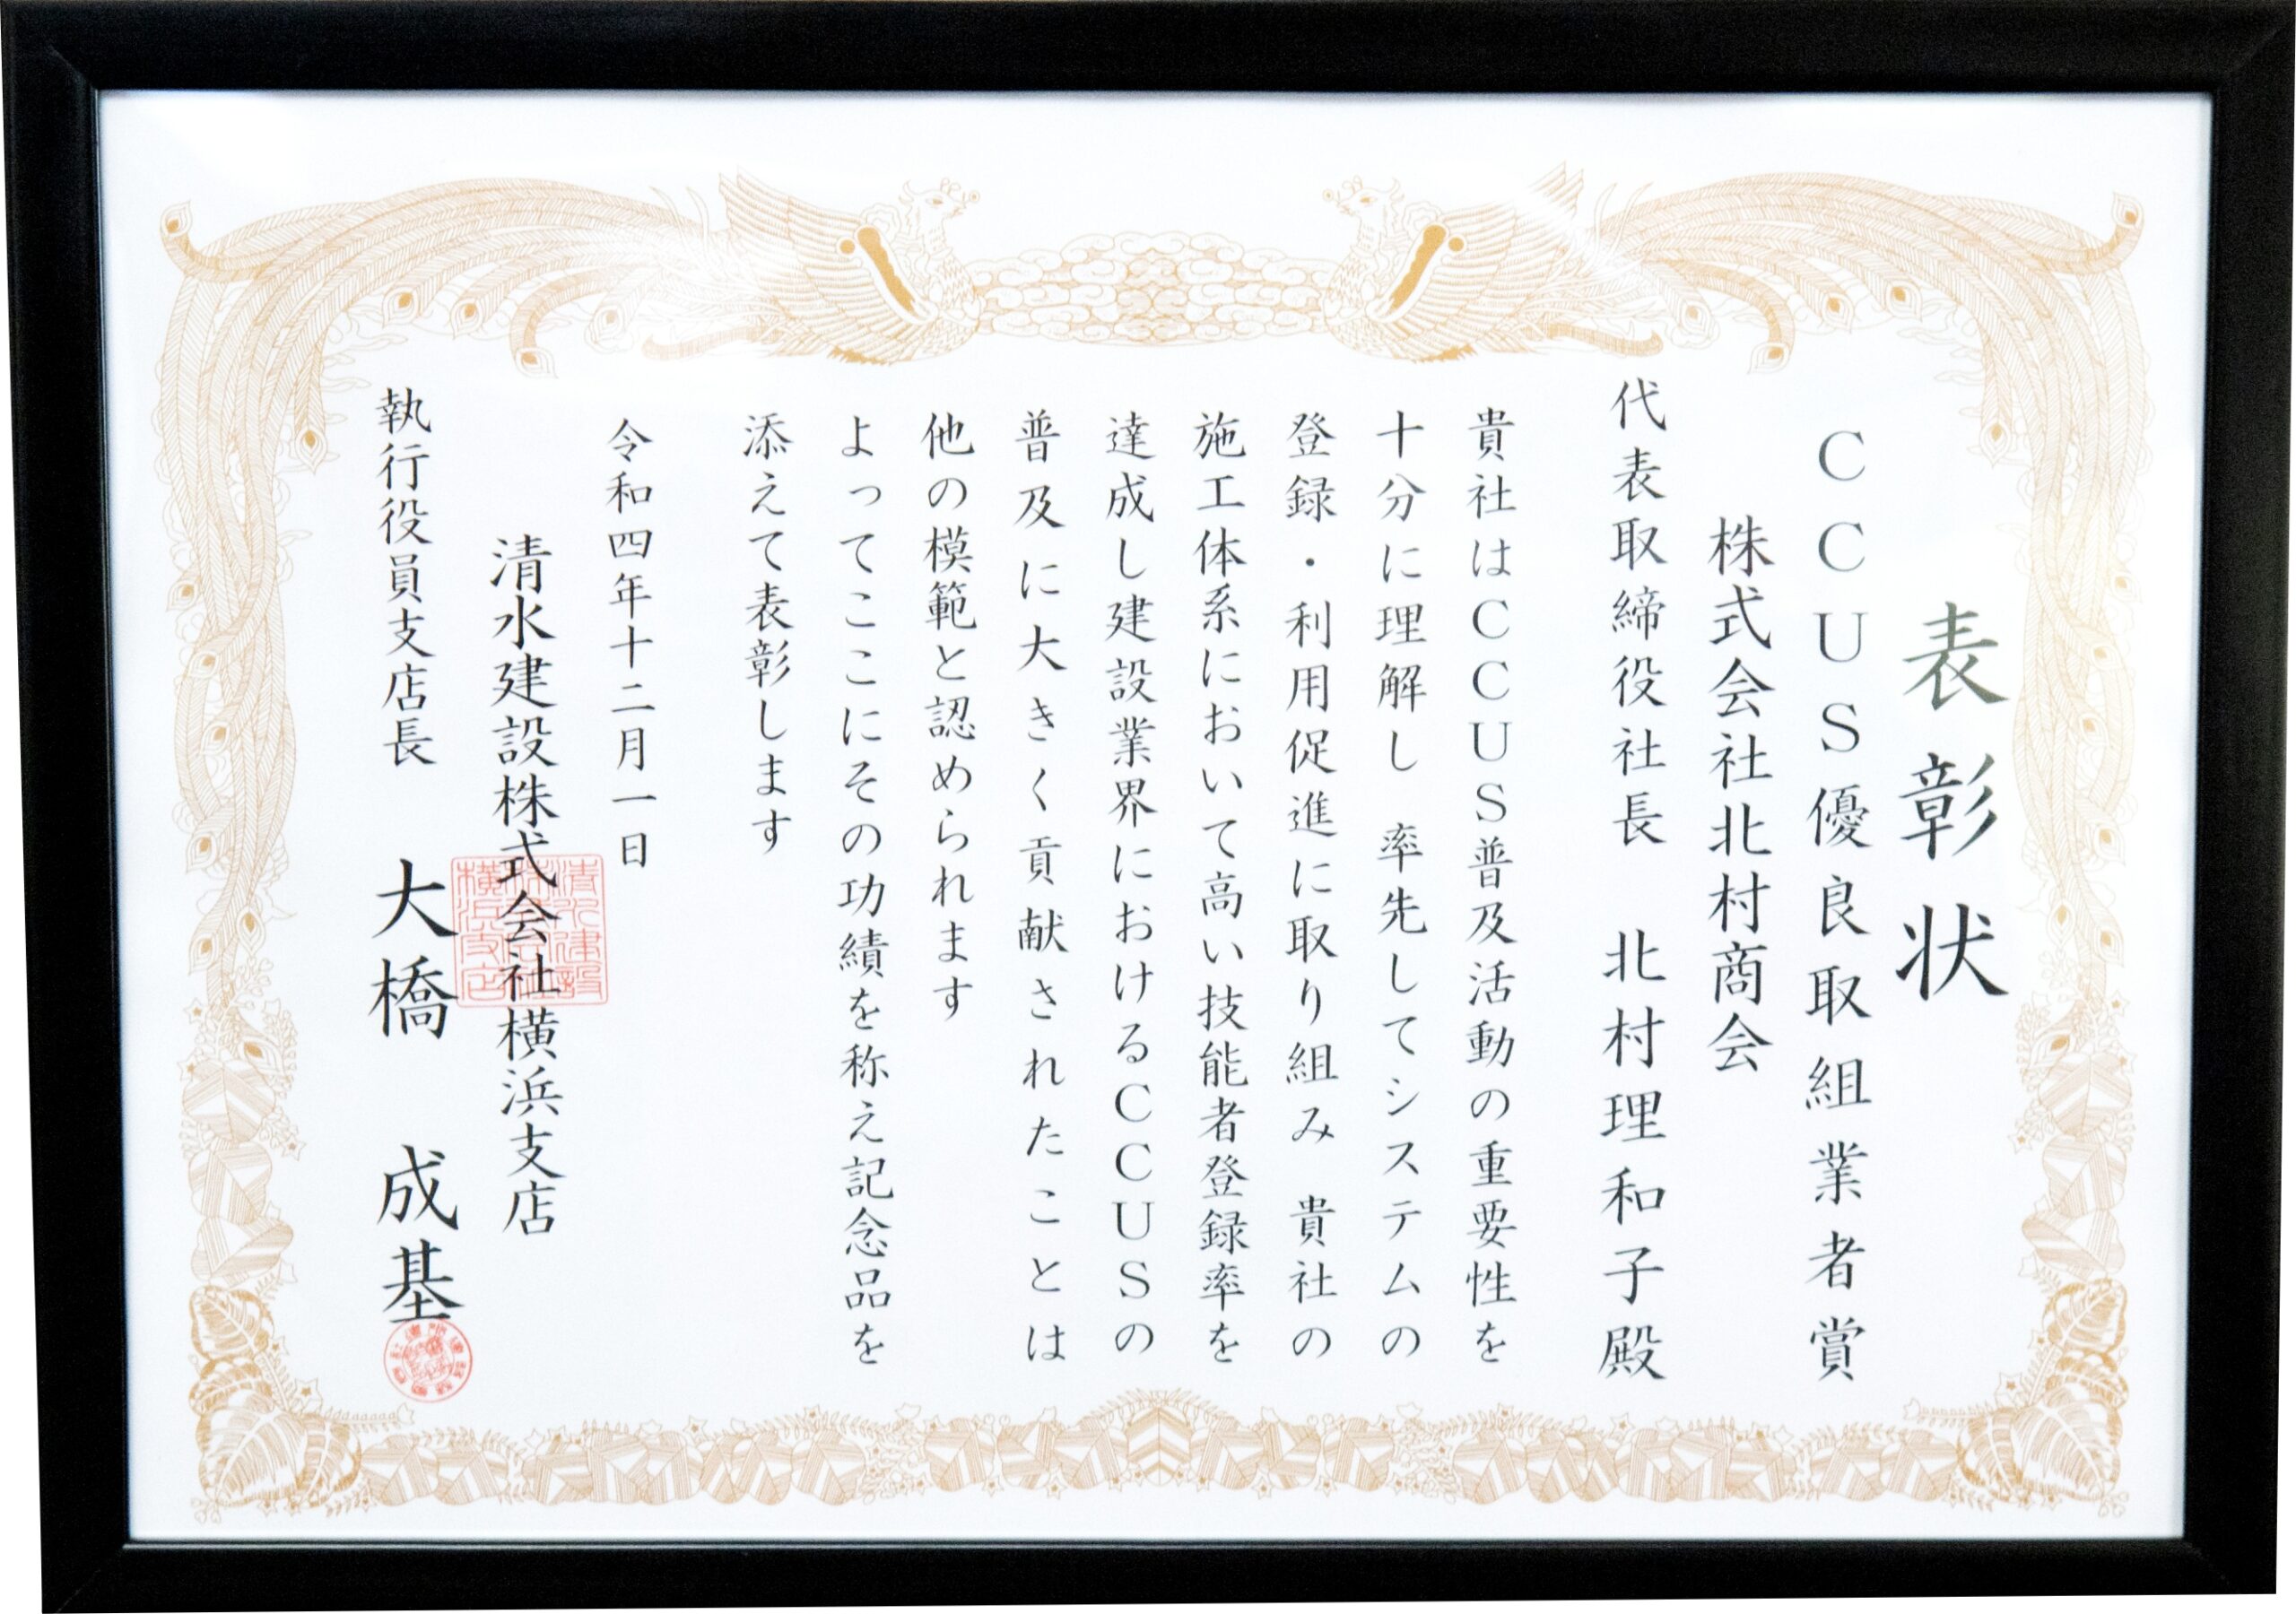 表彰状
CCUS優良取組業者賞
株式会社北村商会
代表取締役社長 北村理和子殿
貴社はCCUS普及活動の重要性を
十分に理解し 率先してシステムの
登録・利用促進に取り組み 貴社の
施工体系において高い技能者登録率を
達成し建設業界におけるCCUSの
普及に大きく貢献されたことは
他の模範と認められます
よってここにその功績を称え記念品を
添えて表彰します
令和四年十二月一日
清水建設株式会社横浜支店
執行役員支店長 大橋 成基